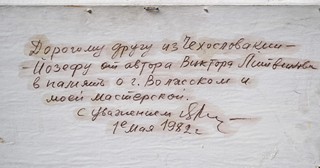 Дорогому другу из Чехословакии –
Йозефу от автора Виктора Литвинова
в память о г. Волжском и
моей мастерской.
С уважением
1е мая 1982 г